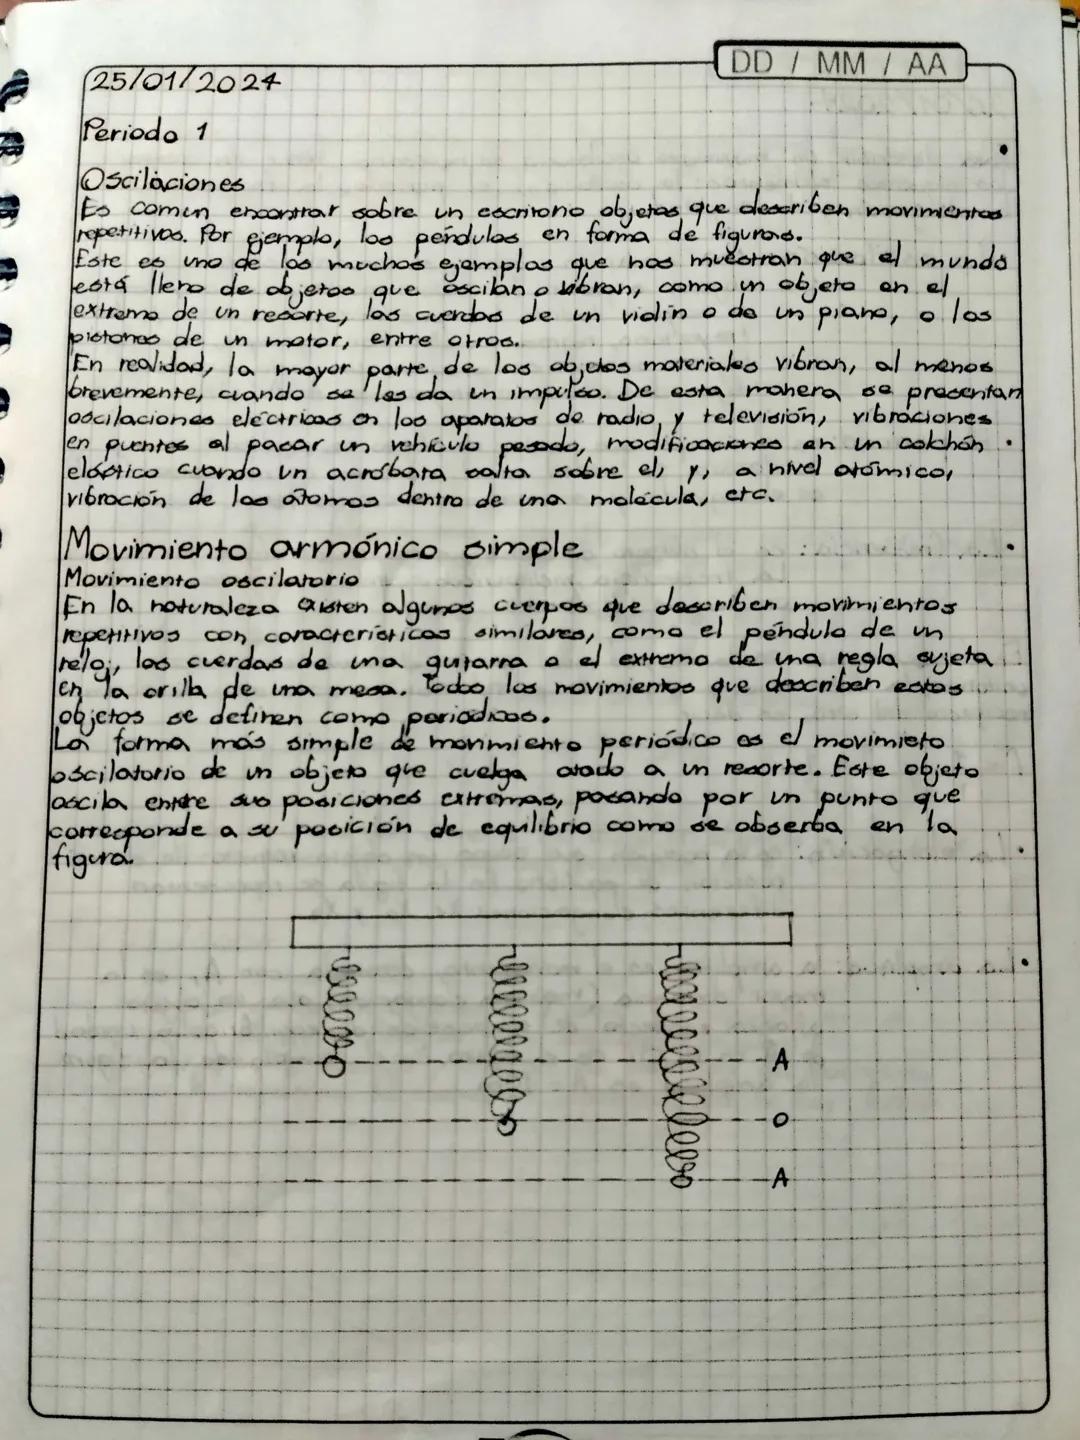 DD / MM / AA
25/01/2024
Periodo 1
Oscilaciones
Es comun encontrar sobre un escritorio objetos que describen movimientos
repetitivos. Por ejemplo, los péndulos en forma de figuras.
Este es uno de los muchos ejemplos que nos muestran que el mundo
está lleno de objetos que oscilan o vibran, como un objeto en el
extremo de un resorte, las cuerdas de un violín o de un piano, o los
pistones de un motor, entre otros.
En realidad, la mayor parte de los objetos materiales vibran, al menos
brevemente, cuando se les da un impulso. De esta manera se presentan
oscilaciones eléctricas en los aparatos de radio y televisión, vibraciones
en puentes al pasar un vehículo pesado, modificaciones en un colchón
elástico cuando un acróbata salta sobre el, y, a nivel atómico,
vibración de los átomos dentro de una molécula, etc.
Movimiento armónico simple
Movimiento oscilatorio
En la naturaleza existen algunos cuerpos que describen movimientos
repetitivos con características similares, como el péndulo de un
reloj, las cuerdas de una guitarra o el extremo de una regla sujeta
en la orilla de una mesa. Todo los movimientos que describen estos
objetos se definen como periodicos.
La forma más simple de movimiento periódico es el movimieto
oscilatorio de un objeto que cuelga atado a un resorte. Este objeto
oscila entre sus posiciones extremas, pasando por un punto que
corresponde a su posición de equilibrio como se obserba en la
figura.
A
O
A